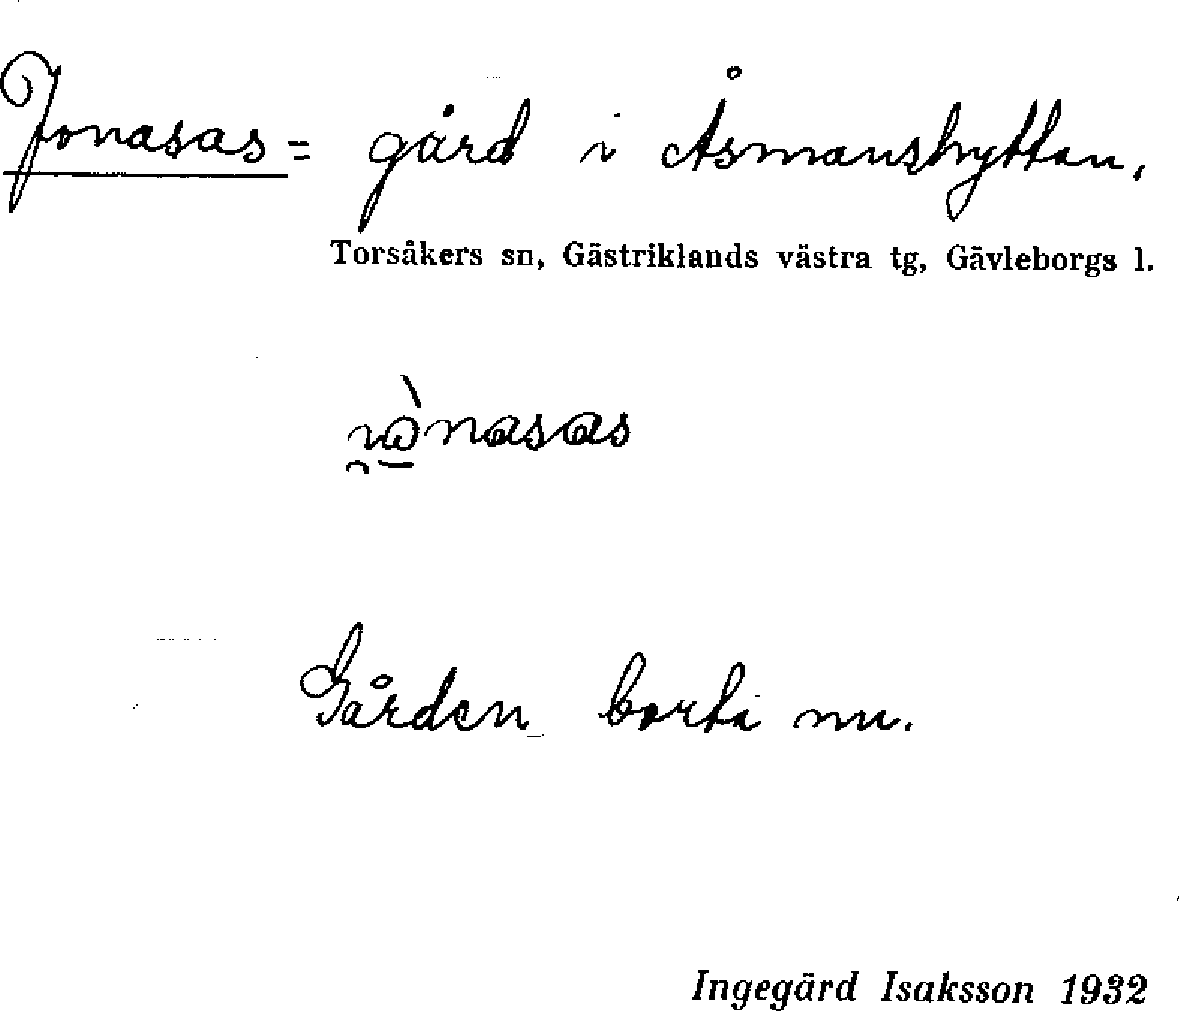 Jonasas = gård i Åsmanshyttan.
Torsåkers sn, Gästriklands västra tg, Gävleborgs l.
Gården borta nu.
Ingegärd Isaksson 1932